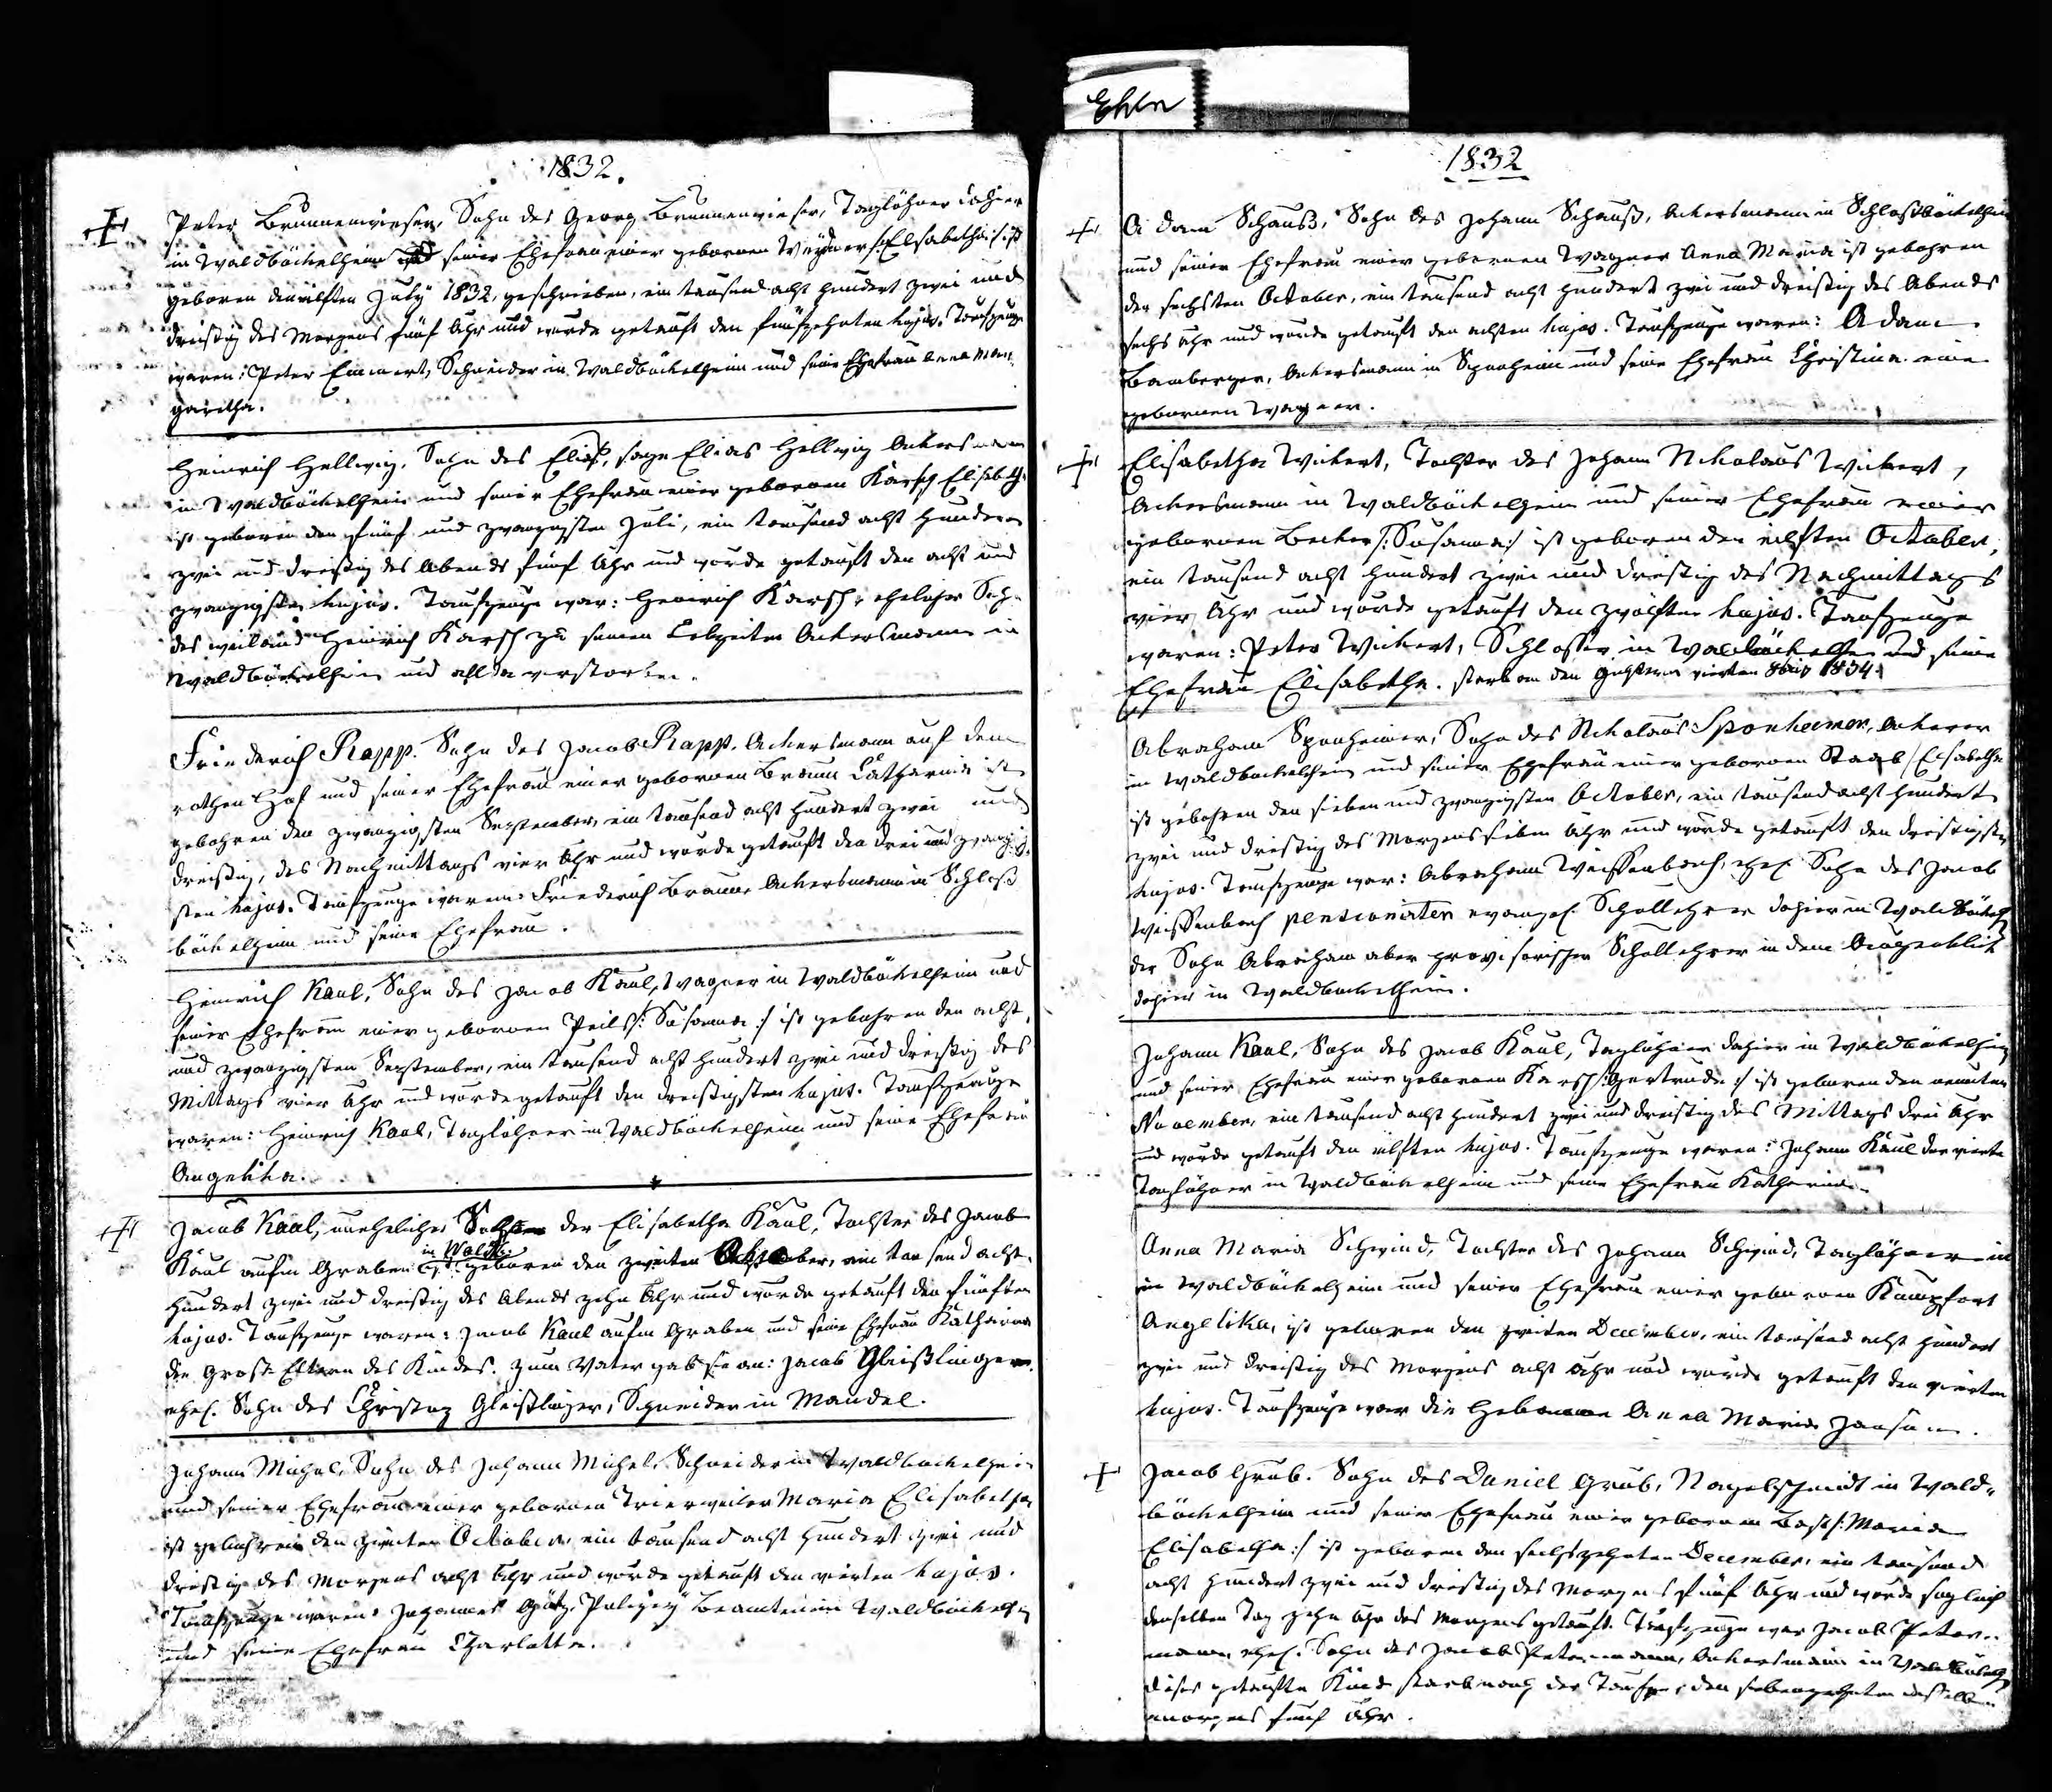 Ehln
1832.
Peter Brunnenwieser, Sohn des Georg Brunnenwieser, Taglöhner dahier
in Waldböckelheim und seiner Ehefrau einer gebornen /:Elsabetha:/ ist
geboren den eilften July 1832, geschrieben, ein tausend acht hundert zwei und
dreißig des Morgens fünf Uhr und wurde getauft den fünfzehnten hujus. Taufzeuge
waren: Peter Emmert, Schneider in Waldböckelheim und seine Ehefrau Anna Mar¬
garetha.
Heinrich Hellwig, Sohn des Elias, sage Elias Hellwig Ackersmann
in Waldböckelheim und seiner Ehefrau einer gebornen Karsch Elisabeth
ist geboren den fünf und zwanzigsten Juli, ein tausend acht hundert
zwei und dreißig des Abends fünf Uhr und wurde getauft den acht und
zwanzigsten hujus. Taufzeuge war: Heinrich Karsch, ehelicher Sohn
des weiland Heinrich Karsch zu seinen Lebzeiten Ackersmann in
Waldböckelheim und allda verstorben.
Friederich Rapp. Sohn des Jacob Rapp, Ackersmann auf dem
rothen Hof und seiner Ehefrau einer gebornen Braun Catharina ist
gebohren den zwanzigsten September, ein tausend acht hundert zwei und
dreißig, des Nachmittags vier Uhr und wurde getauft den drei und zwanzig¬
sten hujus. Taufzeuge waren: Friederich Braun Ackersmann in Schloß
böckelheim und seine Ehefrau.
Heinrich Kaul, Sohn des Jacob Kaul, Wagner in Waldböckelheim und
seiner Ehefrau einer gebornen Peils /:Susanna:/ ist gebohren den acht
und zwanzigsten September, ein tausend acht hundert zwei und dreißig des
Mittags vier Uhr und wurde getauft den dreißigsten hujus. Taufzeuge
waren: Heinrich Kaul, Taglöhner in Waldböckelheim und seine Ehefrau
Angelika.
Jacob Kaul, unehelicher Sohn der Elisabetha Kaul, Tochter des Jacob
in Waldb.
Kaul aufm Graben ist geboren den zweiten October, ein tausend acht
hundert zwei und dreißig des Abends zehn Uhr und wurde getauft den fünften
hujus. Taufzeuge waren: Jacob Kaul aufm Graben und seine Ehefrau Katharina
die Groß-Eltern des Kindes. Zum Vater gab sie an: Jacob Gleißlinger
ehel. Sohn des Christop Gleißlinger, Schneider in Mandel.
Johann Michel, Sohn des Johann Michel, Schneider in Waldböckelheim
und seiner Ehefrau einer gebornen Trierweiler Maria Elisabetha
ist gebohren den zweiten October, ein tausend acht hundert zwei und
dreißig des Morgens acht Uhr und wurde getauft den vierten hujus.
Taufzeuge waren: Johannes Götz, Polizey Beamten in Waldböckelheim
und seine Ehefrau Charlotta.
1832
Adam Schauß, Sohn des Johann Schauß, Ackersmann in Schloßböckelheim
und seiner Ehefrau einer gebornen Wagner Anna Maria ist gebohren
den sechsten October, ein tausend acht hundert zwei und dreißig des Abends
sechs Uhr und wurde getauft den achten hujus. Taufzeuge waren: Adam
Bamberger, Ackersmann in Sponheim und seine Ehefrau Christina eine
gebornen Wagner.
Elisabetha Wickert, Tochter des Johann Nikolaus Wickert,
Ackersmann in Waldböckelheim und seiner Ehefrau einer
gebornen Becker /:Susanna:/ ist geboren den eilften October,
ein tausend acht hundert zwei und dreißig des Nachmittags
vier Uhr und wurde getauft den zwölften hujus. Taufzeuge
waren: Peter Wickert, Schlosser in Waldböckelheim und seine
Ehefrau Elisabetha. starb den vierten 8bris 1834.
Abraham Sponheimer, Sohn des Nikolaus Sponheimer, Ackerer
in Waldböckelheim und seiner Ehefrau einer gebornen Staab /Elisabetha
ist gebohren den sieben und zwanzigsten October, ein tausend acht hundert
zwei und dreißig des Morgens sieben Uhr und wurde getauft den dreißigsten
hujus. Taufzeuge war: Abraham Weissenbach, ehel. Sohn des Jacob
Weissenbach pensionirten evangel. Schullehrer dahier in Waldböckelh
der Sohn Abraham aber provisorischer Schullehrer in dem Augenblick
dahier in Waldböckelheim.
Johann Kaul, Sohn des Jacob Kaul, Taglöhner dahier in Waldböckelheim
und seiner Ehefrau einer gebornen Karsch /:Gertruda:/ ist geboren den neunten
November, ein tausend acht hundert zwei und dreißig des Mittags drei Uhr
und wurde getauft den eilften hujus. Taufzeuge waren: Johann Kaul der vierte
Taglöhner in Waldböckelheim und seine Ehefrau Katharina.
Anna Maria Schwind, Tochter des Johann Schwind, Taglöhner in
in Waldböckelheim und seiner Ehefrau einer gebornen Kumpfort
Angelika, ist geboren den zweiten December, ein tausend acht hundert
zwei und dreißig des Morgens acht Uhr und wurde getauft den vierten
hujus. Taufzeuge war die Hebamme Anna Maria
Jacob Grub. Sohn des Daniel Grub, Nagelschmidt in Wald¬
böckelheim und seiner Ehefrau einer gebornen Bast /:Maria
Elisabetha:/ ist geboren den sechszehnten December, ein tausend
acht hundert zwei und dreißig des Morgens fünf Uhr und wurde sogleich
denselben Tag zehn Uhr des Morgens getauft. Taufzeuge war Jacob Peter¬
mann, ehel. Sohn des Jacob Petermann, Ackersmann in Waldböckelh
dieses getaufte Kind starb nach der Taufe, den siebenzehnten desselben
morgens fünf Uhr.